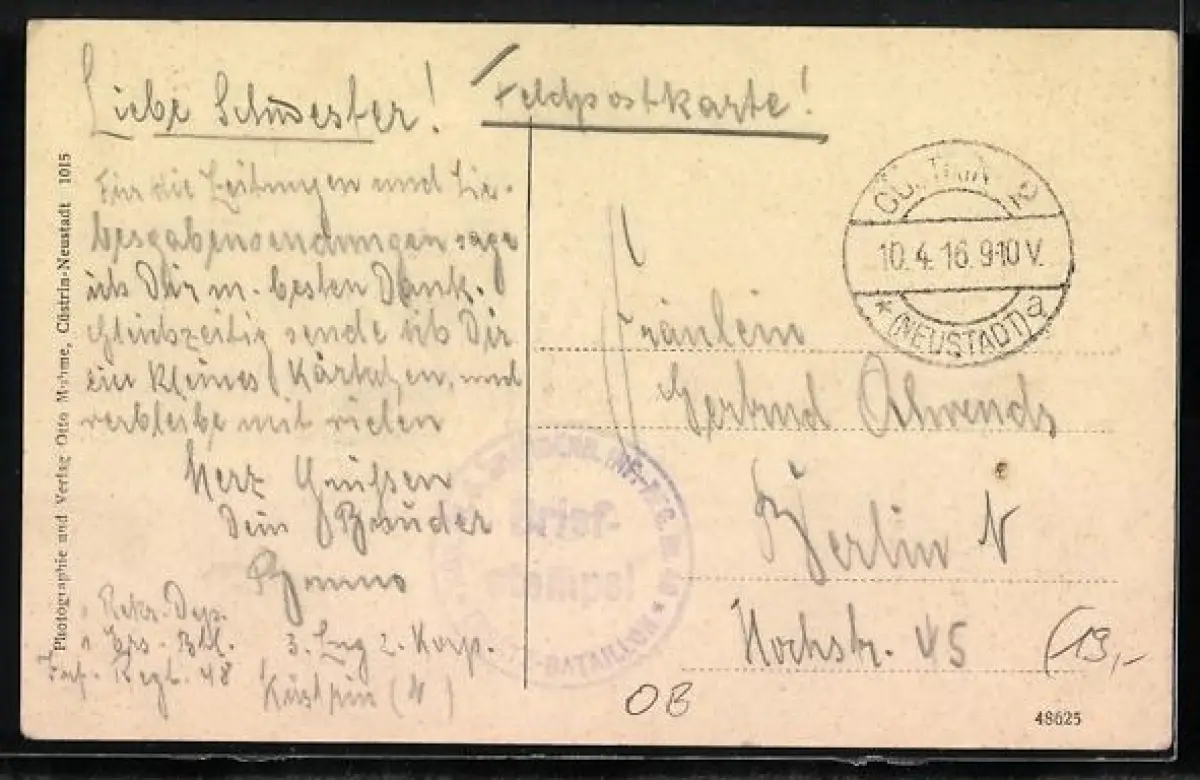 Liebe Schwester!
Feldpostkarte!
Für die Zeitungen und Lie-
besgabensendungen sage
ich Dir m. besten Dank.
Gleichzeitig sende ich Dir
ein kleines Kärtchen, und
verbleibe mit vielen
Herz Grüßen
Dein Bruder
Benno
Rekr. Dep.
Ers. Btl.
3. Zug 2. Korp.
Inf. Regt. 48
Küstrin (N)
Photographie und Verlag Otto Mohme, Cüstrin-Neustadt 1015
10. 4. 16. 9-10 V.
* (NEUSTADT) a
Fräulein
Gertrud Ahrends
Berlin N
Hochstr. 45
INF.-REG.
Brief-
stempel
BATAILLON *
(13,-
OB
48625